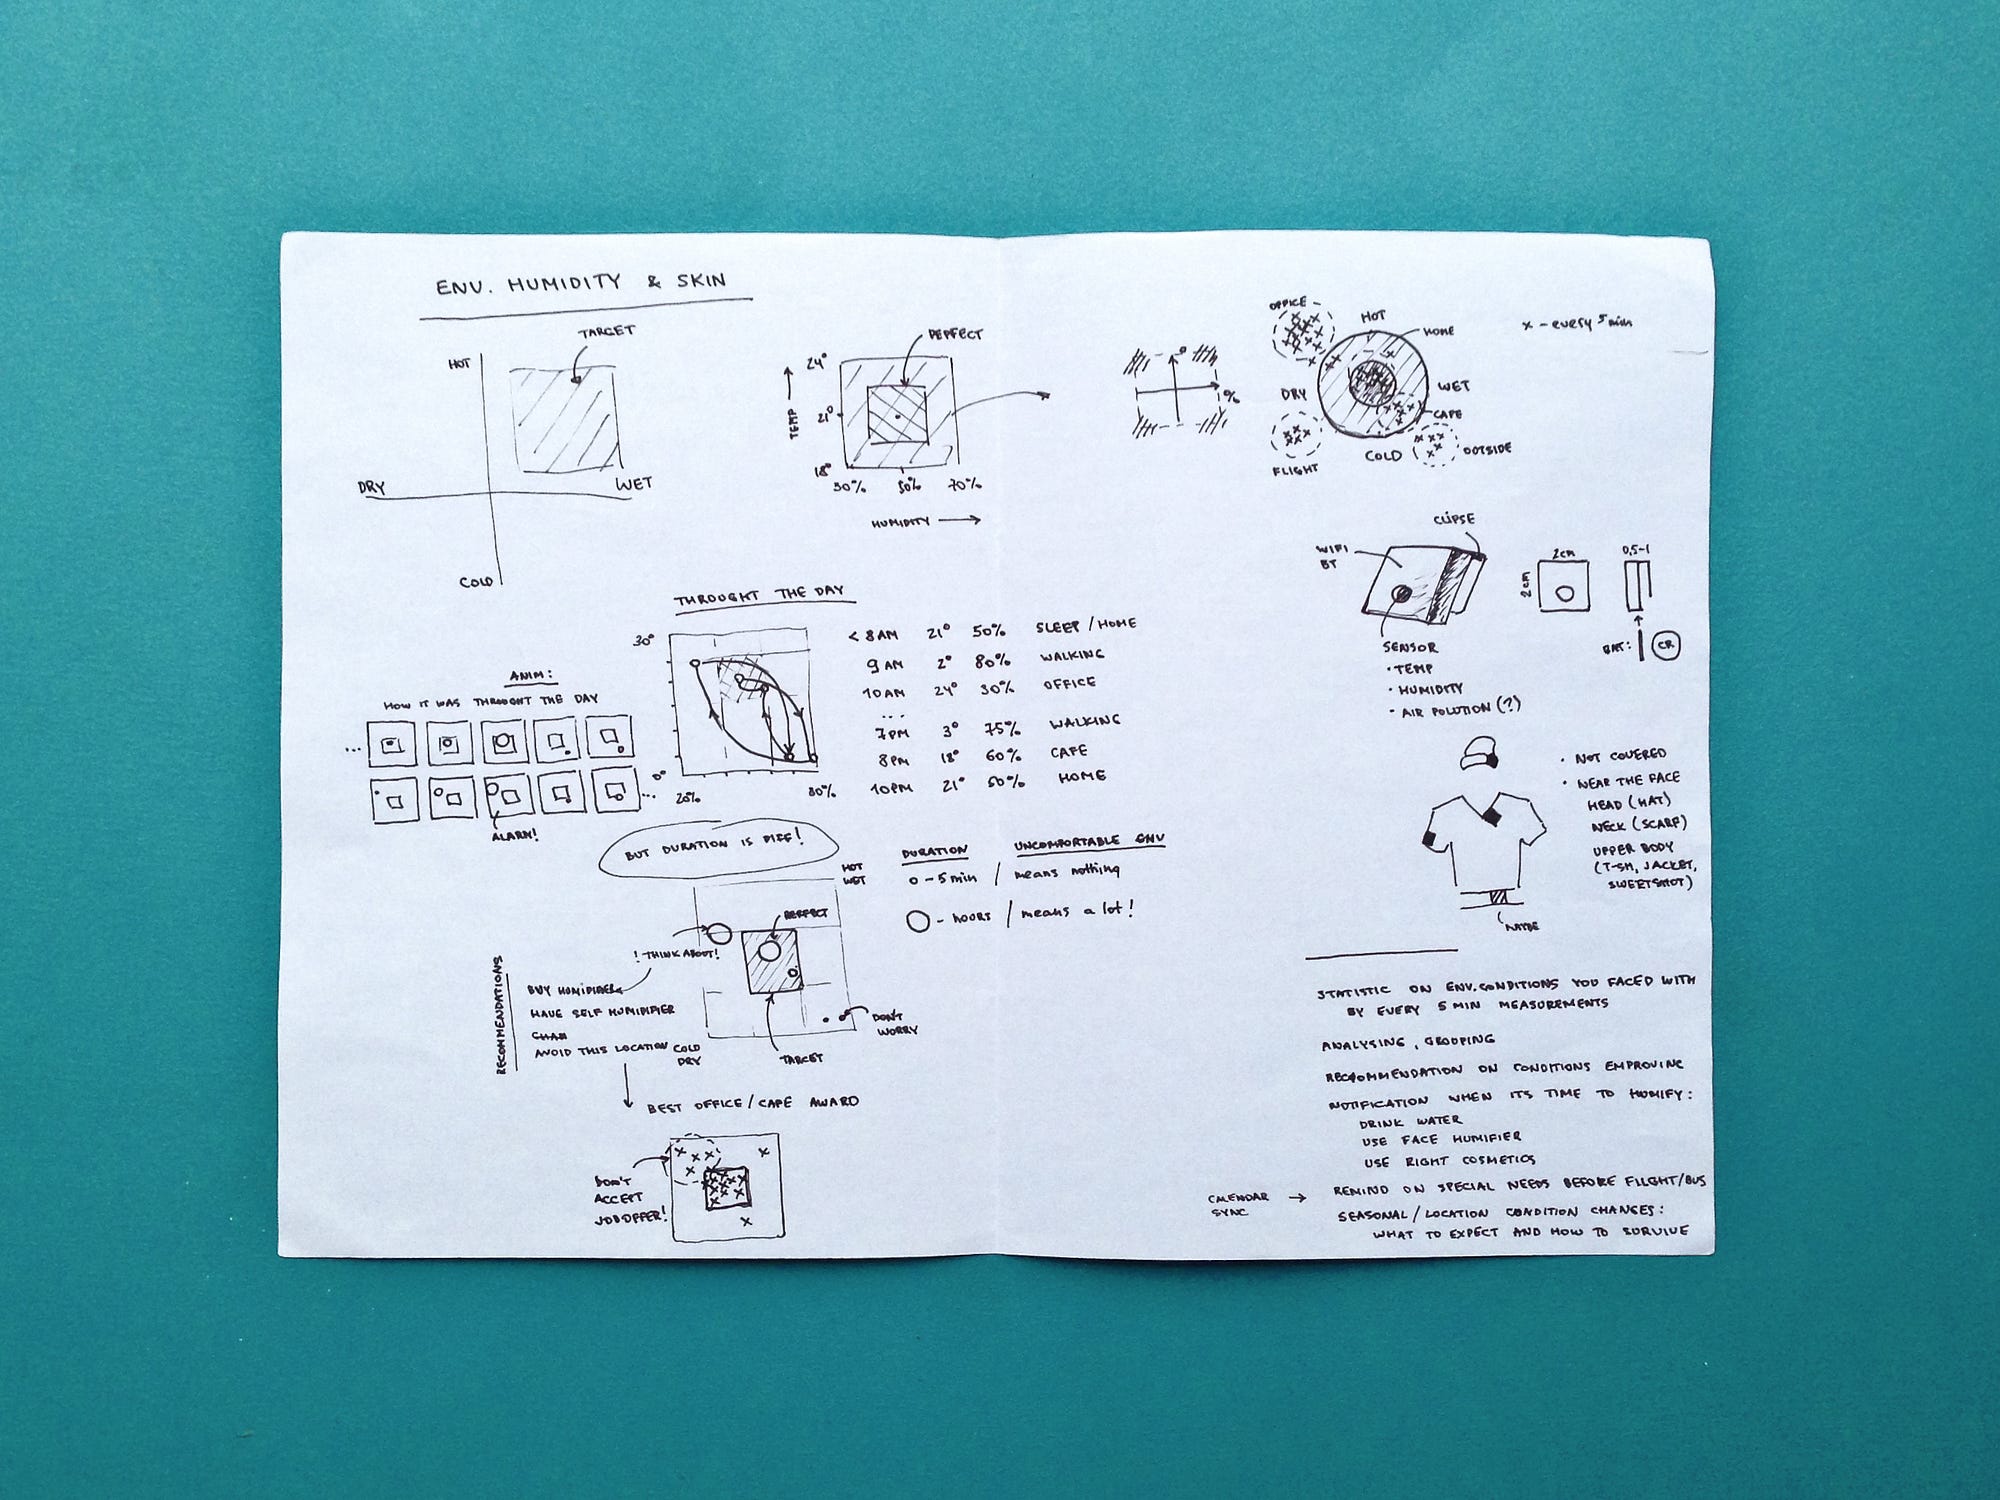 ENV. HUMIDITY & SKIN
TARGET
HOT
DRY
WET
COLD
PERFECT
TEMP
24°
21°
18°
30%
50%
70%
HUMIDITY
%
OFFICE
HOT
HOME
DRY
WET
CAFE
FLIGHT
COLD
OUTSIDE
x - every 5 min
THROUGHT THE DAY
30°
0°
20%
80%
< 8 AM 21° 50% SLEEP / HOME
9 AM 2° 80% WALKING
10 AM 24° 30% OFFICE
...
7 PM 3° 75% WALKING
8 PM 18° 60% CAFE
10 PM 21° 50% HOME
ANIM:
HOW IT WAS THROUGHT THE DAY
...
...
ALARM!
BUT DURATION IS DIFF!
DURATION UNCOMFORTABLE ENV
o - 5 min / means nothing
O - hours / means a lot!
HOT
WET
PERFECT
! THINK ABOUT!
DON'T
WORRY
TARGET
COLD
DRY
RECOMMENDATIONS
BUY HUMIDIFIER
HAVE SELF HUMIDIFIER
AVOID THIS LOCATION
BEST OFFICE / CAFE AWARD
DON'T
ACCEPT
JOB OFFER!
CLIPSE
WIFI
BT
SENSOR
• TEMP
• HUMIDITY
• AIR POLUTION (?)
2 cm
2 cm
0,5-1
BAT:
CR
• NOT COVERED
• NEAR THE FACE
HEAD (HAT)
NECK (SCARF)
UPPER BODY
(T-SH, JACKET,
SWEETSHOT)
MAYBE
STATISTIC ON ENV. CONDITIONS YOU FACED WITH
BY EVERY 5 MIN MEASUREMENTS
ANALYSING, GROUPING
RECOMMENDATION ON CONDITIONS EMPROVING
NOTIFICATION WHEN ITS TIME TO HUMIFY:
DRINK WATER
USE FACE HUMIFIER
USE RIGHT COSMETICS
CALENDAR
SYNC
REMIND ON SPECIAL NEEDS BEFORE FLIGHT/BUS
SEASONAL / LOCATION CONDITION CHANGES:
WHAT TO EXPECT AND HOW TO SURVIVE